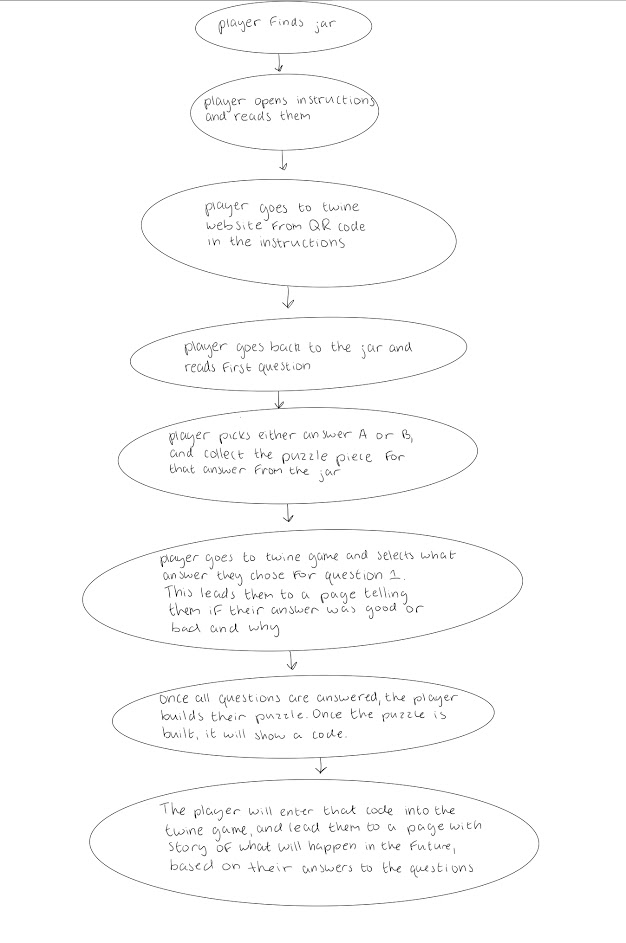 player finds jar
player opens instructions
and reads them
player goes to twine
website from QR code
in the instructions
player goes back to the jar and
reads first question
player picks either answer A or B,
and collect the puzzle piece for
that answer from the jar
player goes to twine game and selects what
answer they chose for question 1.
This leads them to a page telling
them if their answer was good or
bad and why
Once all questions are answered, the player
builds their puzzle. Once the puzzle is
built, it will show a code.
The player will enter that code into the
twine game, and lead them to a page with
story of what will happen in the future,
based on their answers to the questions